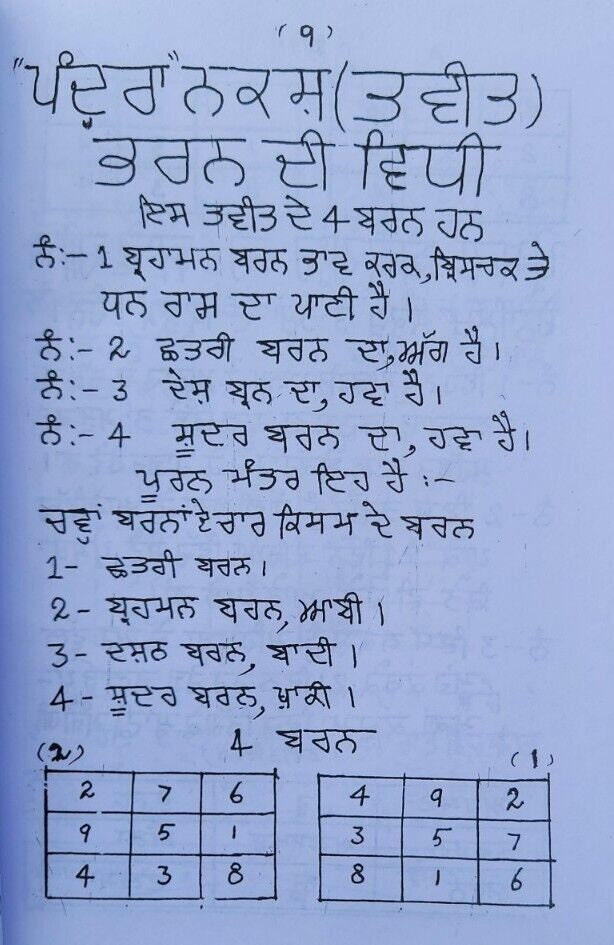 (੧)
"ਪੰਦ੍ਰਾ" ਨਕਸ਼ (ਤਵੀਤ)
ਭਰਨ ਦੀ ਵਿਧੀ
ਇਸ ਤਵੀਤ ਦੇ 4 ਬਰਨ ਹਨ
ਨੰ:- 1 ਬ੍ਰਾਹਮਨ ਬਰਨ ਭਾਵ ਕਰਕ, ਬ੍ਰਿਸਚਕ ਤੇ
ਧਨ ਰਾਸ ਦਾ ਪਾਣੀ ਹੈ।
ਨੰ:- 2 ਛਤਰੀ ਬਰਨ ਦਾ, ਅੱਗ ਹੈ।
ਨੰ:- 3 ਦੇਸ਼ ਬ੍ਰਨ ਦਾ, ਹਵਾ ਹੈ।
ਨੰ:- 4 ਸ਼ੂਦਰ ਬਰਨ ਦਾ, ਹਵਾ ਹੈ।
ਪੂਰਨ ਮੰਤਰ ਇਹ ਹੈ :-
ਚਵ੍ਹਾਂ ਬਰਨਾਂ ਦੇ ਚਾਰ ਕਿਸਮ ਦੇ ਬਰਨ
1- ਛਤਰੀ ਬਰਨ।
2- ਬ੍ਰਹਮਨ ਬਰਨ, ਆਬੀ।
3- ਦਸ਼ਨ ਬਰਨ, ਬਾਦੀ।
4- ਸ਼ੂਦਰ ਬਰਨ, ਖ਼ਾਕੀ।
4 ਬਰਨ
(2) (1)
2 7 6 4 9 2
9 5 1 3 5 7
4 3 8 8 1 6